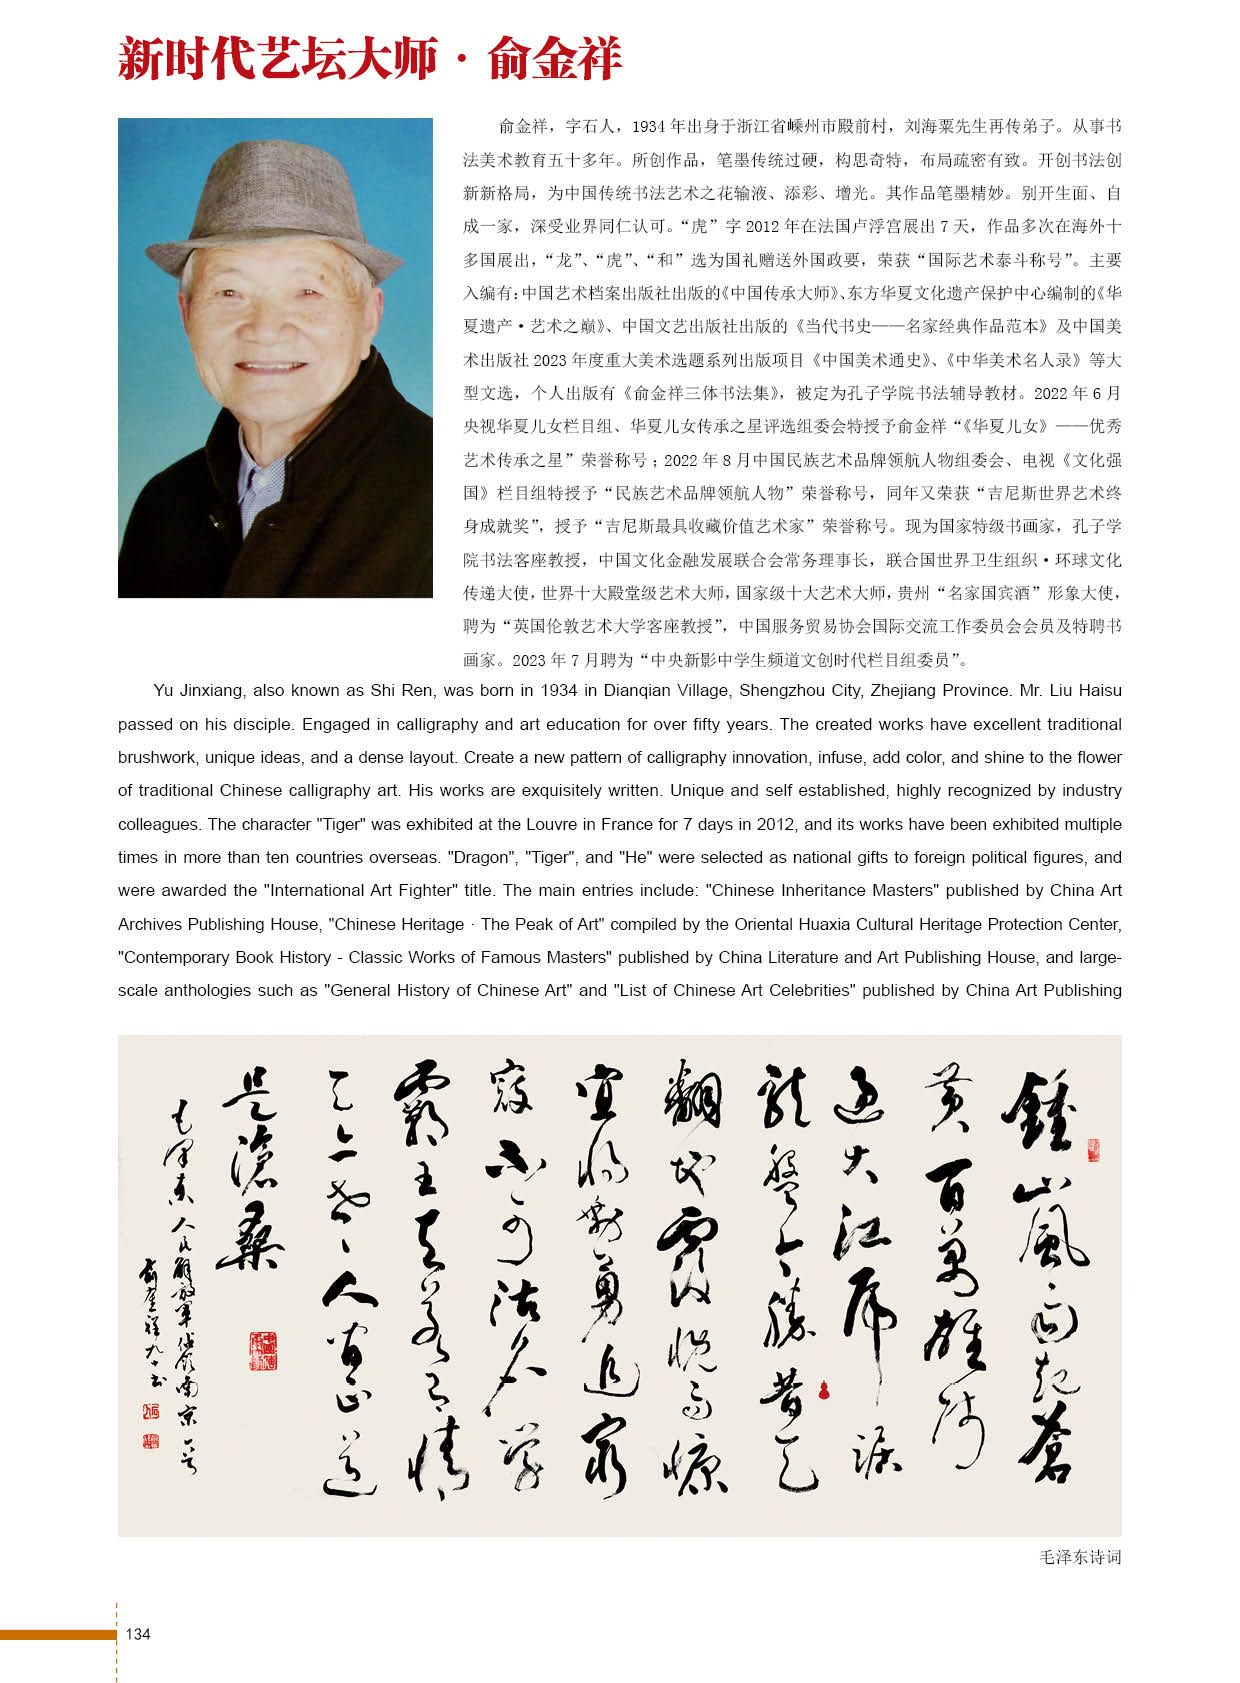 新时代艺坛大师·俞金祥
俞金祥，字石人，1934 年出身于浙江省嵊州市殿前村，刘海粟先生再传弟子。从事书
法美术教育五十多年。所创作品，笔墨传统过硬，构思奇特，布局疏密有致。开创书法创
新新格局，为中国传统书法艺术之花输液、添彩、增光。其作品笔墨精妙。别开生面、自
成一家，深受业界同仁认可。“虎”字 2012 年在法国卢浮宫展出 7 天，作品多次在海外十
多国展出，“龙”、“虎”、“和”选为国礼赠送外国政要，荣获“国际艺术泰斗称号”。主要
入编有：中国艺术档案出版社出版的《中国传承大师》、东方华夏文化遗产保护中心编制的《华
夏遗产·艺术之巅》、中国文艺出版社出版的《当代书史——名家经典作品范本》及中国美
术出版社 2023 年度重大美术选题系列出版项目《中国美术通史》、《中华美术名人录》等大
型文选，个人出版有《俞金祥三体书法集》，被定为孔子学院书法辅导教材。2022 年 6 月
央视华夏儿女栏目组、华夏儿女传承之星评选组委会特授予俞金祥“《华夏儿女》——优秀
艺术传承之星”荣誉称号；2022 年 8 月中国民族艺术品牌领航人物组委会、电视《文化强
国》栏目组特授予“民族艺术品牌领航人物”荣誉称号，同年又荣获“吉尼斯世界艺术终
身成就奖”，授予“吉尼斯最具收藏价值艺术家”荣誉称号。现为国家特级书画家，孔子学
院书法客座教授，中国文化金融发展联合会常务理事长，联合国世界卫生组织·环球文化
传递大使，世界十大殿堂级艺术大师，国家级十大艺术大师，贵州“名家国宾酒”形象大使，
聘为“英国伦敦艺术大学客座教授”，中国服务贸易协会国际交流工作委员会会员及特聘书
画家。2023 年 7 月聘为“中央新影中学生频道文创时代栏目组委员”。
Yu Jinxiang, also known as Shi Ren, was born in 1934 in Dianqian Village, Shengzhou City, Zhejiang Province. Mr. Liu Haisu
passed on his disciple. Engaged in calligraphy and art education for over fifty years. The created works have excellent traditional
brushwork, unique ideas, and a dense layout. Create a new pattern of calligraphy innovation, infuse, add color, and shine to the flower
of traditional Chinese calligraphy art. His works are exquisitely written. Unique and self established, highly recognized by industry
colleagues. The character "Tiger" was exhibited at the Louvre in France for 7 days in 2012, and its works have been exhibited multiple
times in more than ten countries overseas. "Dragon", "Tiger", and "He" were selected as national gifts to foreign political figures, and
were awarded the "International Art Fighter" title. The main entries include: "Chinese Inheritance Masters" published by China Art
Archives Publishing House, "Chinese Heritage · The Peak of Art" compiled by the Oriental Huaxia Cultural Heritage Protection Center,
"Contemporary Book History - Classic Works of Famous Masters" published by China Literature and Art Publishing House, and large-
scale anthologies such as "General History of Chinese Art" and "List of Chinese Art Celebrities" published by China Art Publishing
鍾山風雨起蒼
黄百萬雄師
過大江虎踞
龍盤今勝昔天
翻地覆慨而慷
宜將剩勇追窮
寇不可沽名學
霸王天若有情
天亦老人间正道
是滄桑
毛澤東人民解放軍佔領南京
俞金祥九十書
毛泽东诗词
134